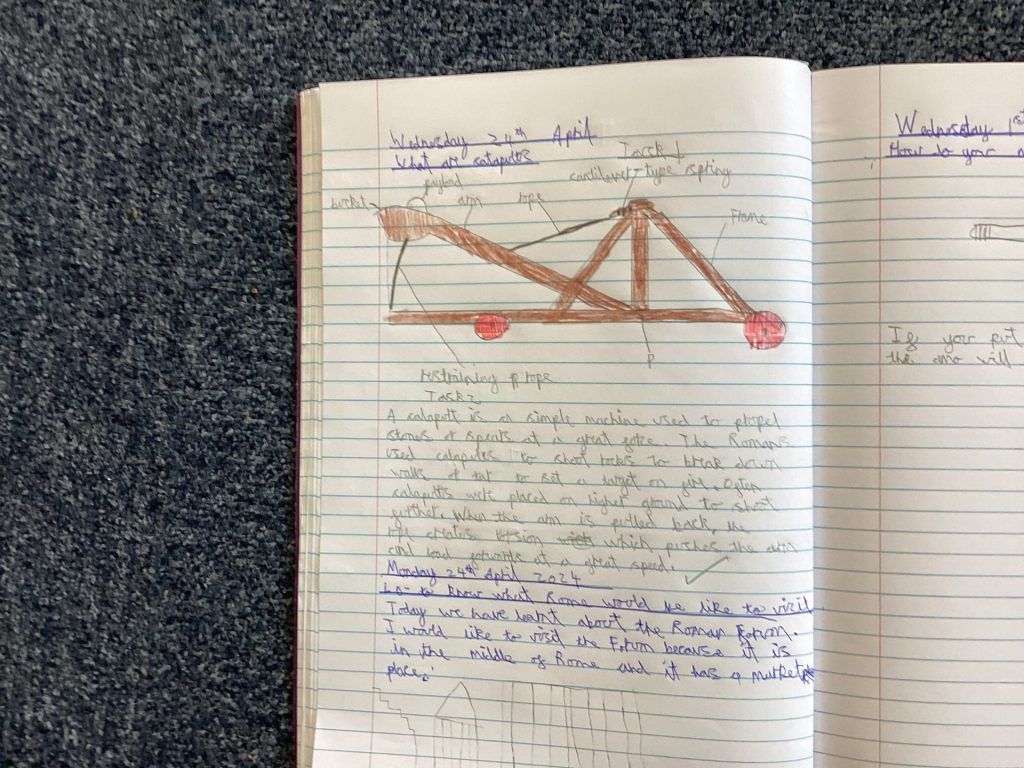 Wednesday 24th April
What are catapults
Task 1
cantilever-type spring
payload
bucket
arm
rope
Frame
P
restraining rope
Task 2
A catapult is a simple machine used to propel
stones or spears at a great force. The Romans
used catapults to shoot rocks to break down
walls or tar to set a target on fire. Often
catapults were placed on higher ground to shoot
further. When the arm is pulled back, the
rope creates tension which pushes the arm
and load forwards at a great speed.
Monday 24th April 2024
LO- to know what Rome would be like to visit
Today we have learnt about the Roman Forum.
I would like to visit the Forum because it is
in the middle of Rome and it has a market
place.
Wednesday 1st
How do your
If you put
the will